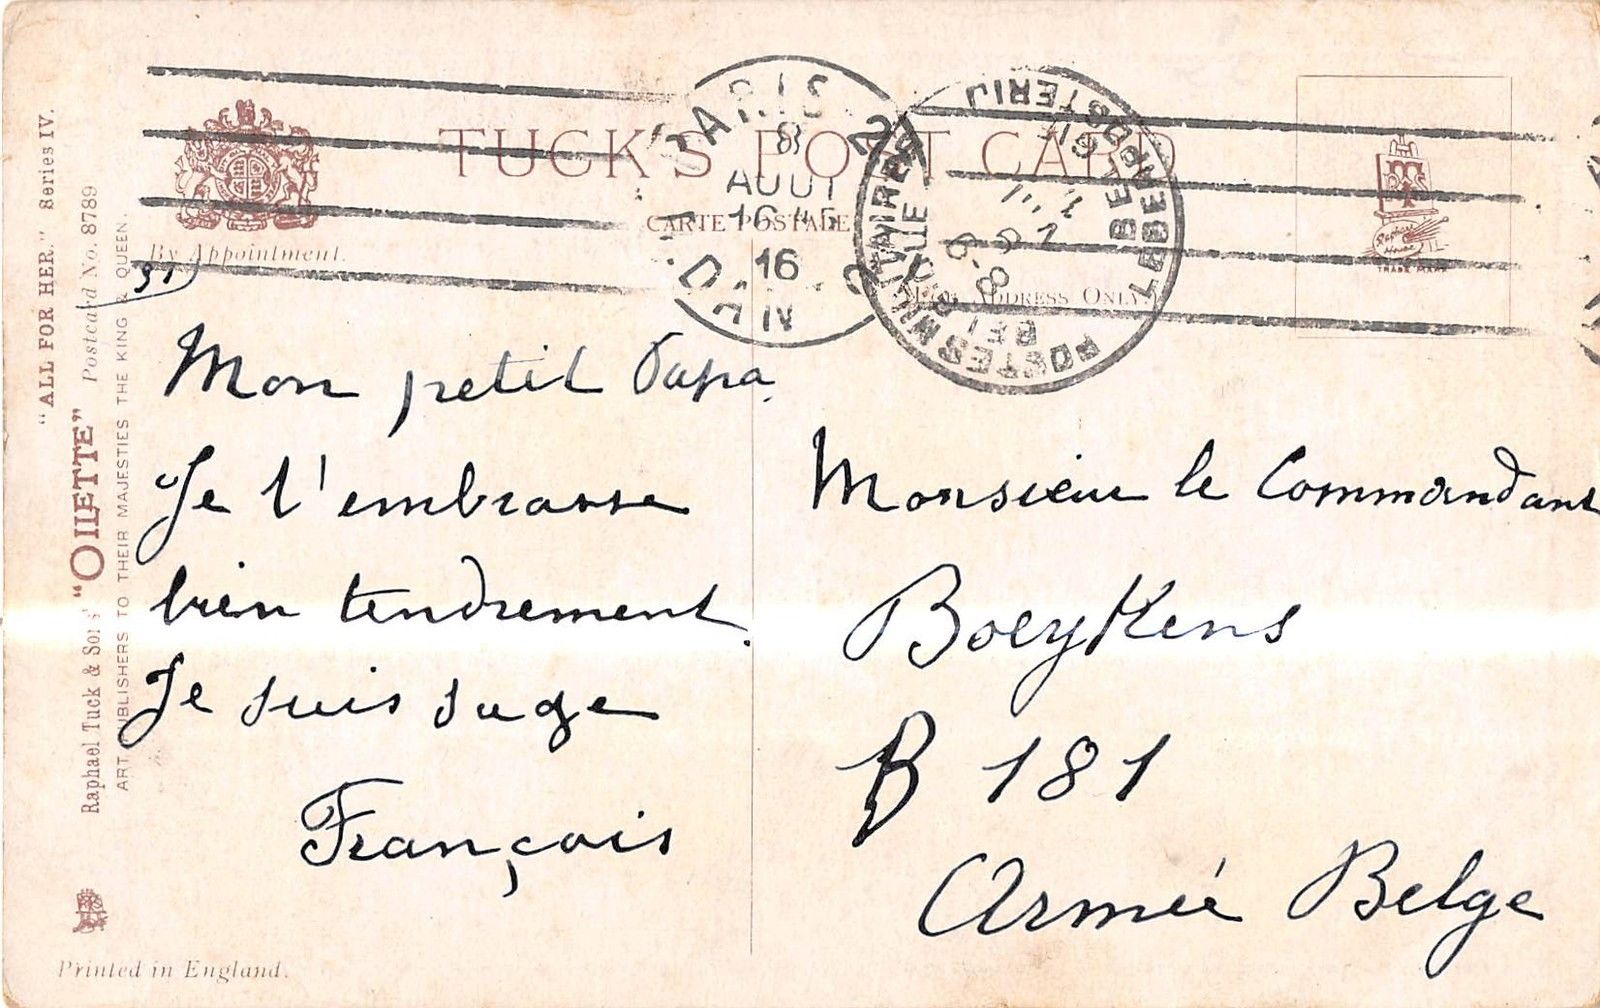 "ALL FOR HER." Series IV.
Raphael Tuck & Sons' "OILETTE" Postcard No. 8789
ART PUBLISHERS TO THEIR MAJESTIES THE KING & QUEEN.
By Appointment.
TUCK'S POST CARD
CARTE POSTALE
ADDRESS ONLY.
TRADE MARK
PARIS
8
AOUT
16 45
16
POSTES MILITAIRES
31
Mon petit Papa
Je t'embrasse
bien tendrement.
Je suis sage
François
Monsieur le Commandant
Boeykens
B 181
Armée Belge
Printed in England.